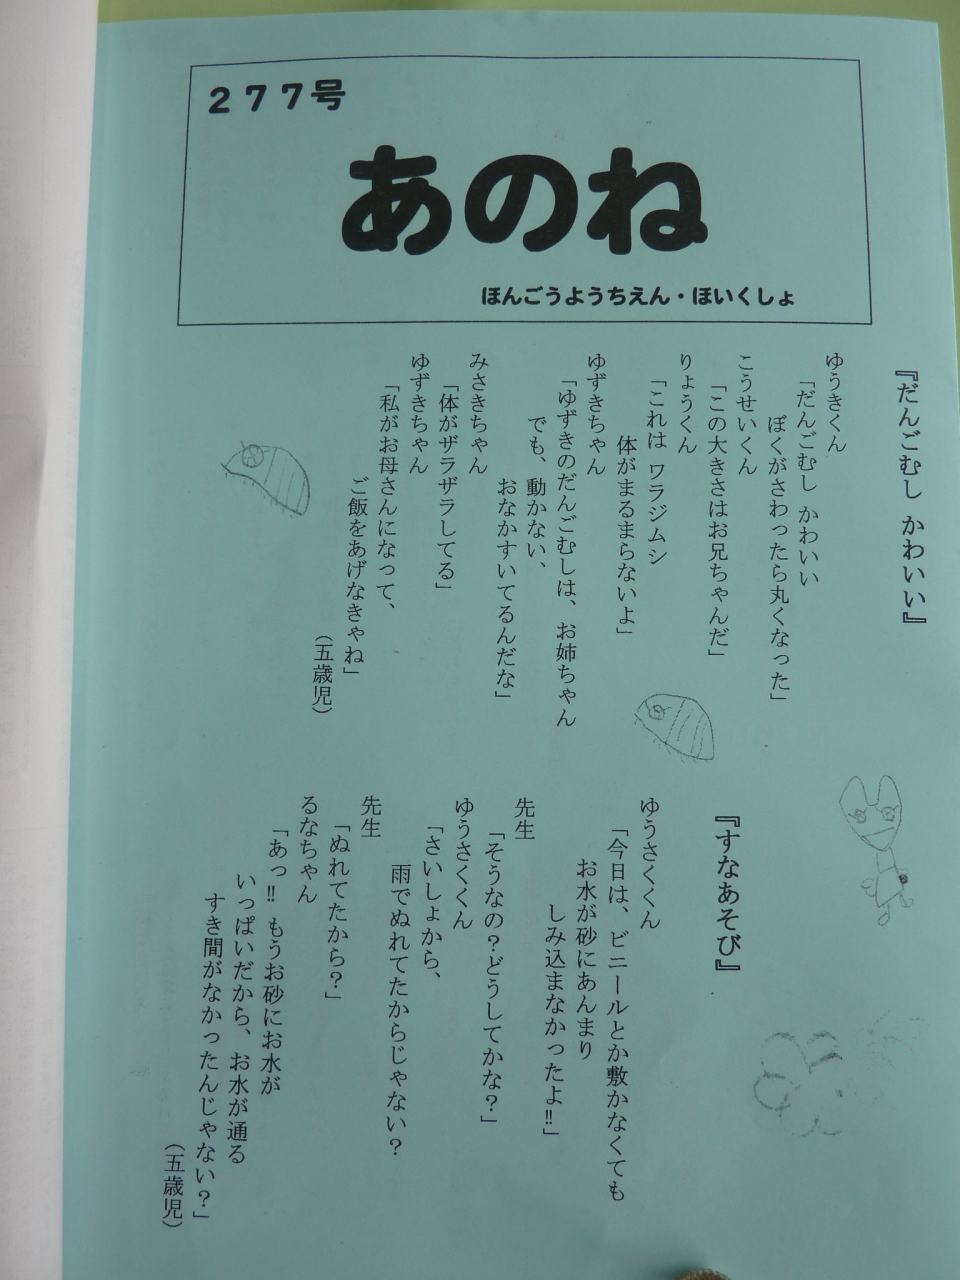 ２７７号
あのね
ほんごうようちえん・ほいくしょ
『だんごむし かわいい』
ゆうきくん
「だんごむし かわいい
ぼくがさわったら丸くなった」
こうせいくん
「この大きさはお兄ちゃんだ」
りょうくん
「これは ワラジムシ
体がまるまらないよ」
ゆずきちゃん
「ゆずきのだんごむしは、お姉ちゃん
でも、動かない、
おなかすいてるんだな」
みさきちゃん
「体がザラザラしてる」
ゆずきちゃん
「私がお母さんになって、
ご飯をあげなきゃね」
（五歳児）
『すなあそび』
ゆうさくくん
「今日は、ビニールとか敷かなくても
お水が砂にあんまり
しみ込まなかったよ‼」
先生
「そうなの？どうしてかな？」
ゆうさくくん
「さいしょから、
雨でぬれてたからじゃない？
先生
「ぬれてたから？」
るなちゃん
「あっ‼ もうお砂にお水が
いっぱいだから、お水が通る
すき間がなかったんじゃない？」
（五歳児）